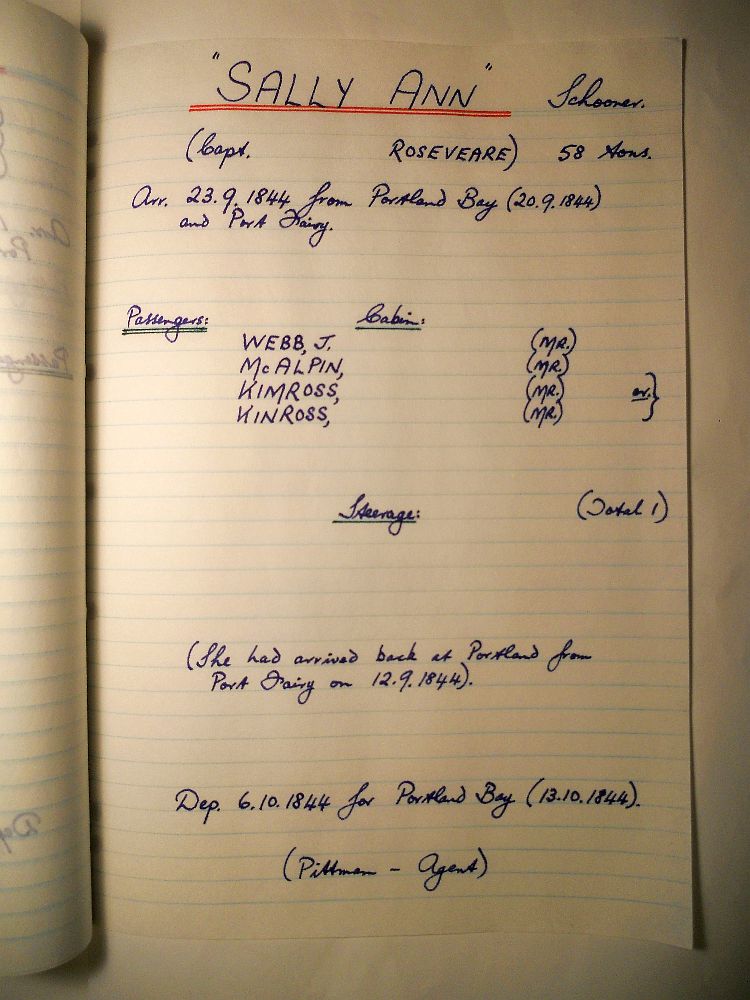 "SALLY ANN" Schooner.
(Capt. ROSEVEARE) 58 tons.
Arr. 23.9.1844 from Portland Bay (20.9.1844)
and Port Fairy.
Passengers: Cabin:
WEBB, J. (MR.)
McALPIN, (MR.)
KIMROSS, (MR.) or }
KINROSS, (MR.)
Steerage: (Total 1)
(She had arrived back at Portland from
Port Fairy on 12.9.1844).
Dep. 6.10.1844 for Portland Bay (13.10.1844).
(Pittman - Agent)